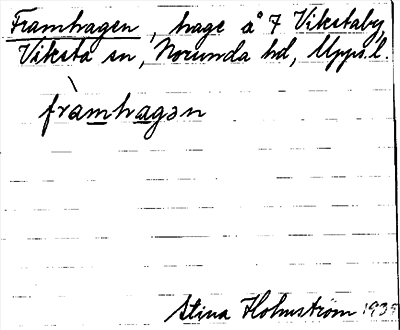 Framhagen, hage å 7 Vikstaby,
Viksta sn, Norunda hd, Upps. l.
fràmhagən
Stina Holmström 1935